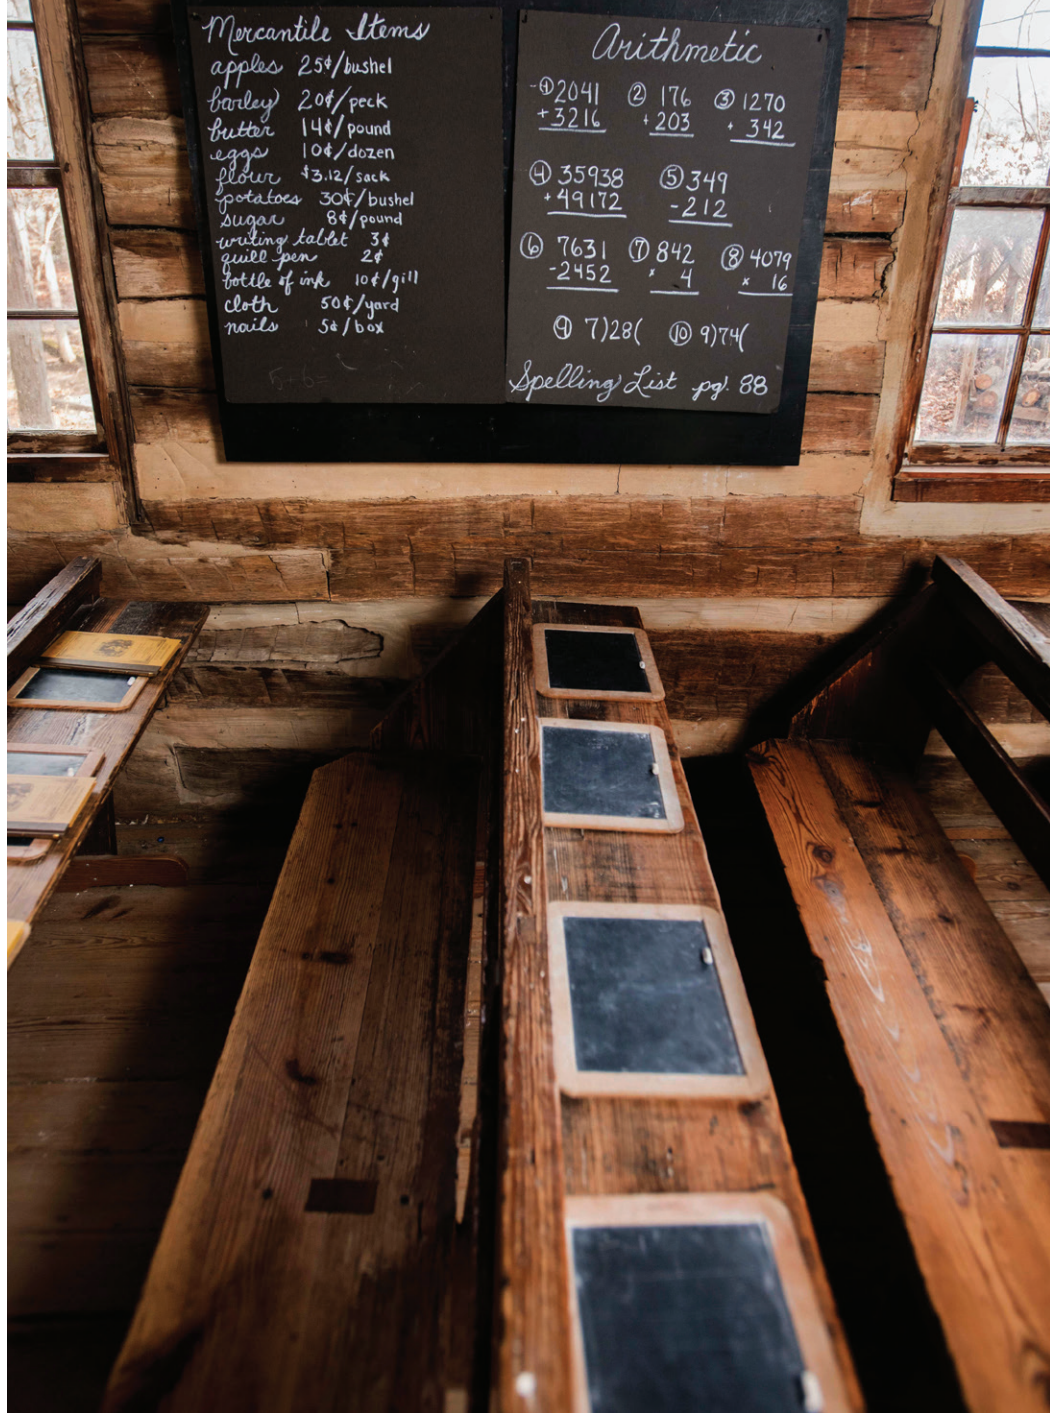 Mercantile Items
apples 25¢/bushel
barley 20¢/peck
butter 14¢/pound
eggs 10¢/dozen
flour $3.12/sack
potatoes 30¢/bushel
sugar 8¢/pound
writing tablet 3¢
quill pen 2¢
bottle of ink 10¢/gill
cloth 50¢/yard
nails 5¢/box
Arithmetic
① 2041 ② 176 ③ 1270
+3216 +203 + 342
④ 35938 ⑤ 349
+49172 -212
⑥ 7631 ⑦ 842 ⑧ 4079
-2452 × 4 × 16
⑨ 7)28( ⑩ 9)74(
Spelling List pg. 88